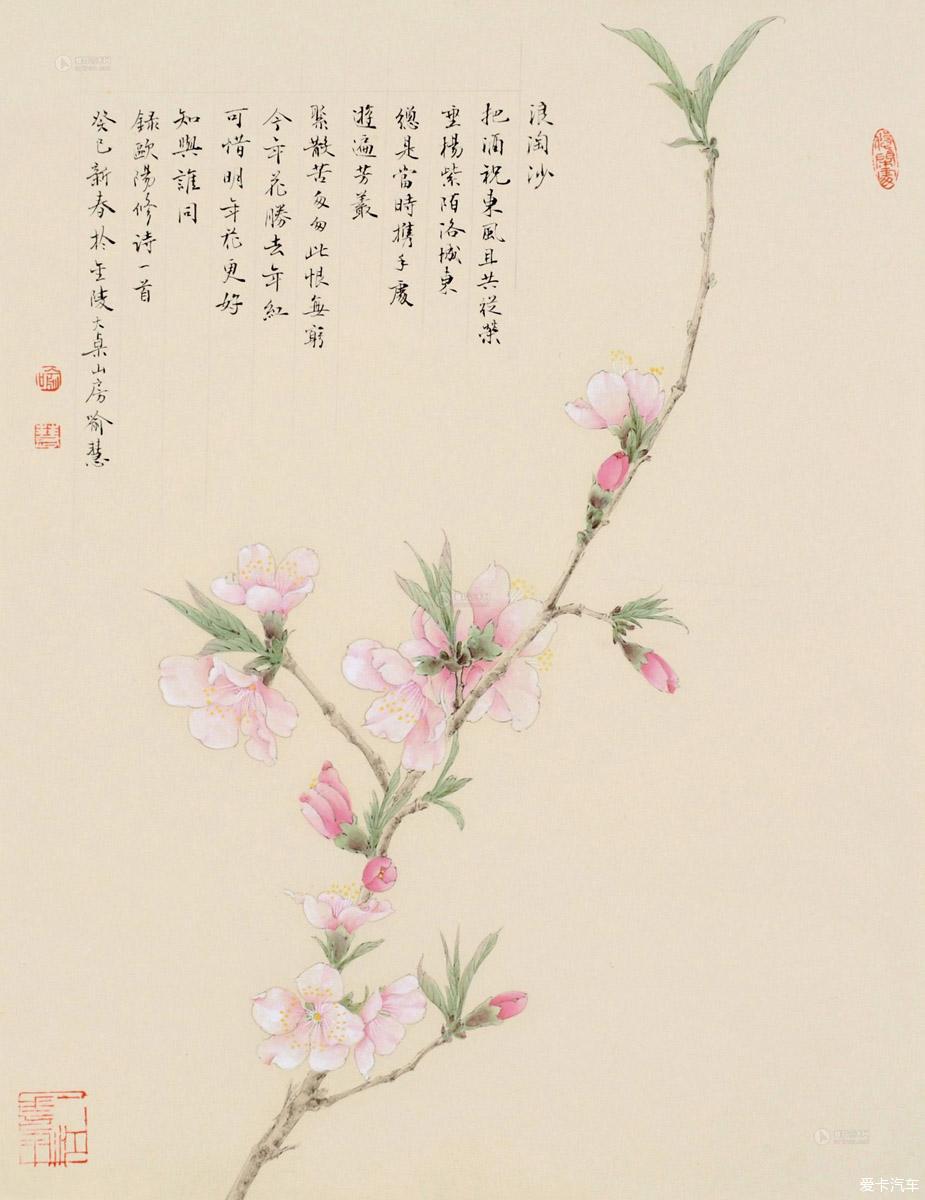 浪淘沙
把酒祝東風且共從榮
垂楊紫陌洛城東
總是當時攜手處
遊遍芳叢
聚散苦匆匆此恨無窮
今年花勝去年紅
可惜明年花更好
知與誰同
錄歐陽修詩一首
癸巳新春於金陵大桌山房喻慧
喻
慧
爱卡汽车